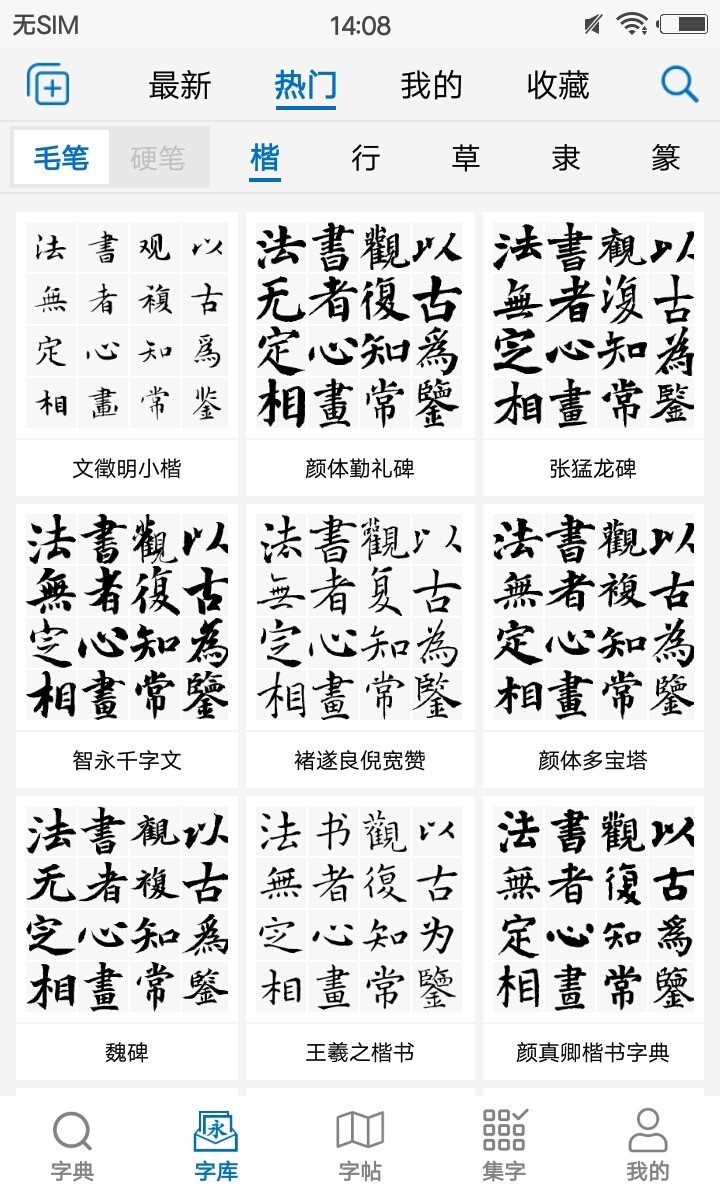 无SIM 14:08
最新 热门 我的 收藏
毛笔 硬笔 楷 行 草 隶 篆
法書观以
無者複古
定心知爲
相畫常鉴
文徵明小楷
法書觀以
无者復古
定心知爲
相畫常鑒
颜体勤礼碑
法書觀以
無者復古
定心知為
相畫常鋻
张猛龙碑
法書觀以
無者復古
定心知為
相畫常鑒
智永千字文
法書觀以
無者复古
定心知為
相畫常鋻
褚遂良倪宽赞
法書觀以
無者複古
定心知為
相畫常鑒
颜体多宝塔
法書觀以
无者複古
定心知爲
相畫常鋻
魏碑
法书觀以
無者復古
定心知为
相畫常鑒
王羲之楷书
法書觀以
無者復古
定心知爲
相畫常鑒
颜真卿楷书字典
永
字典 字库 字帖 集字 我的